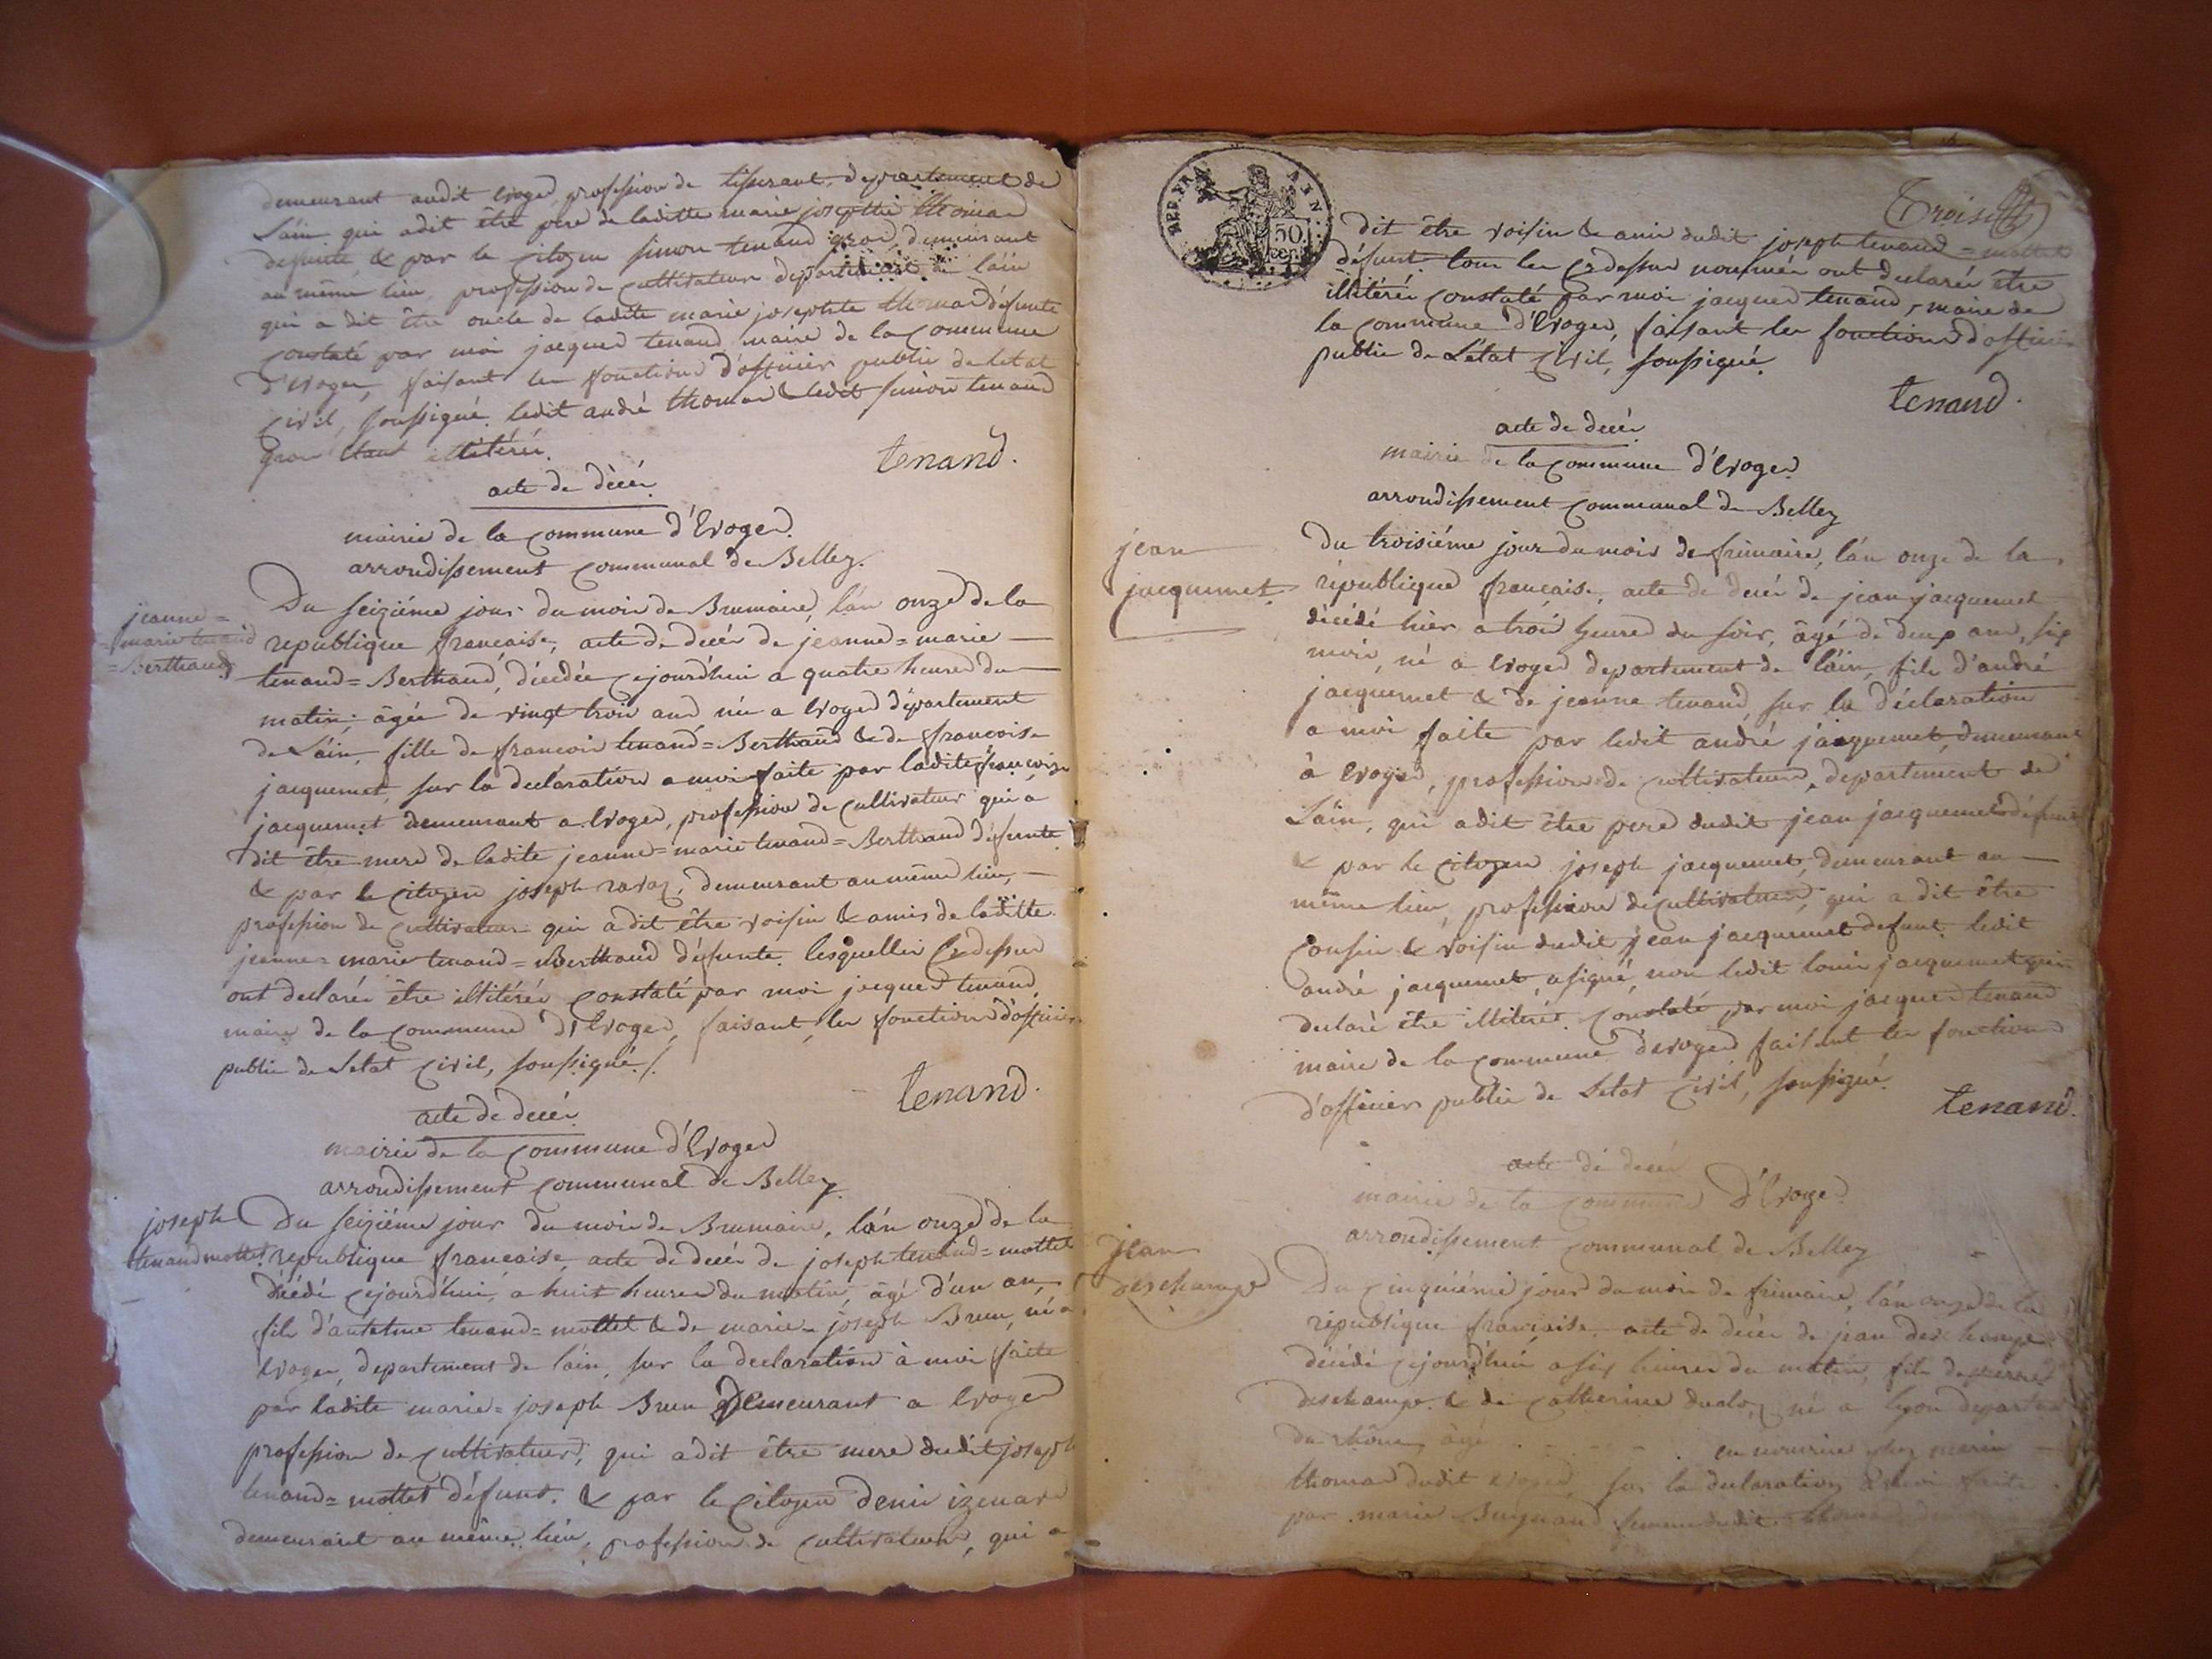 demeurant audit Evoges, profession de tisserant, departement de
L'ain qui a dit être pere de laditte marie josephte thomas
defunte, & par le citoyen simon tenand gros, demeurant
au même lieu, profession de cultivateur departement de l'ain
qui a dit être oncle de ladite marie josephte thomas défunte
constaté par moi jacques tenand maire de la commune
d'Evoges, faisant les fonctions d'officier public de letat
civil, soussigné. ledit andré thomas & ledit simon tenand
gros étant illitérés.
tenand.
acte de décès
mairie de la commune d'Evoges.
arrondissement communal de Belley.
jeanne =
= marie tenand
= Berthand
Du seizième jour du mois de Brumaire, l'an onze de la
republique francaise, acte de decès de jeanne = marie
tenand = Berthand, décédée cejourd'hui a quatre heures du
matin; âgée de vingt trois ans née a Evoges département
de L'ain, fille de francois tenand = Berthand & de francoise
jacquemet, sur la declaration a moi faite par ladite francoise
jacquemet demeurant a Evoges, profession de cultivateur qui a
dit être mere de ladite jeanne = marie tenand = Berthand défunte.
& par le citoyen joseph ravaz, demeurant au même lieu,
profession de cultivateur qui a dit être voisin & amis de laditte
jeanne = marie tenand = Berthand défunte. lesquelles cy dessus
ont declarés être illitérés constaté par moi jacques tenand,
maire de la commune d'Evoges, faisant les fonctions d'officier
public de Letat civil, soussigné./.
tenand.
acte de decès
mairie de la commune d'Evoges
arrondissement communal de Belley
joseph
tenand mottet
Du seizième jour du mois de Brumaire, l'an onze de la
republique francaise, acte de decès de joseph tenand = mottet
décédé cejourd'hui, a huit heures du matin, âgé d'un an,
fils d'antelme tenand = mottet & de marie = joseph Brun, né a
Evoges, departement de l'ain, sur la declaration à moi faite
par ladite marie = joseph Brun demeurant a Evoges
profession de cultivateurs, qui a dit être mere dudit joseph
tenand = mottet défunt. & par le citoyen denis izenard
demeurant au même lieu, profession de cultivateurs, qui a
REP. FRA.
50
cen.
Trois
dit être voisin & ami dudit joseph tenand = mottet
défunt tous les cy dessus nommés ont declarés être
illitérés constaté par moi jacques tenand, maire de
la commune d'Evoges, faisant les fonctions d'officier
public de L'état civil, soussigné.
tenand.
acte de decès
mairie de la commune d'Evoges
arrondissement communal de Belley
jean
jacquemet.
Du troisième jour du mois de frimaire, l'an onze de la
république francaise, acte de decès de jean jacquemet
décédé hier a trois heures du soir, âgé de deux ans, six
mois, né a Evoges departement de l'ain, fils d'andré
jacquemet & de jeanne tenand, sur la déclaration
a moi faite par ledit andré jacquemet, demeurant
à Evoges, profession de cultivateurs, departement de
L'ain, qui a dit être pere dudit jean jacquemet défunt
& par le citoyen joseph jacquemet, demeurant au
même lieu, profession de cultivateurs, qui a dit être
cousin & voisin dudit jean jacquemet defunt. ledit
andré jacquemet, a signé, non ledit louis jacquemet qui a
declaré être illitéré. constaté par moi jacques tenand
maire de la commune d'evoges faisant les fonctions
d'officier public de Letat civil, soussigné.
tenand.
acte de decès
mairie de la commune D'Evoges
arrondissement communal de Belley
jean
deschamps
Du cinquième jour du mois de frimaire, l'an onze de la
république francaise, acte de decès de jean deschamps
décédé cejourd'hui a six heures du matin, fils de pierre
deschamps & de Catherine duclo, né a lyon departement
du rhône, âgé en nourrice chez marin
thomas dudit Evoges, sur la declaration a moi faite
par marie femme dudit thomas